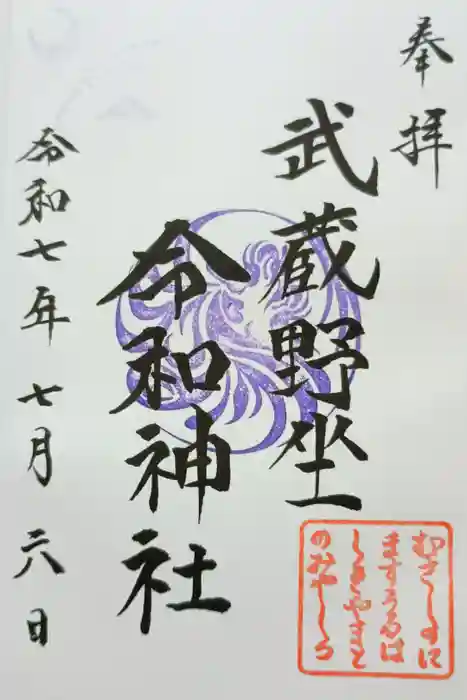 奉拝
武蔵野坐
令和神社
令和七年七月六日
むさしのに
ますうるは
しきやまと
のみやしろ